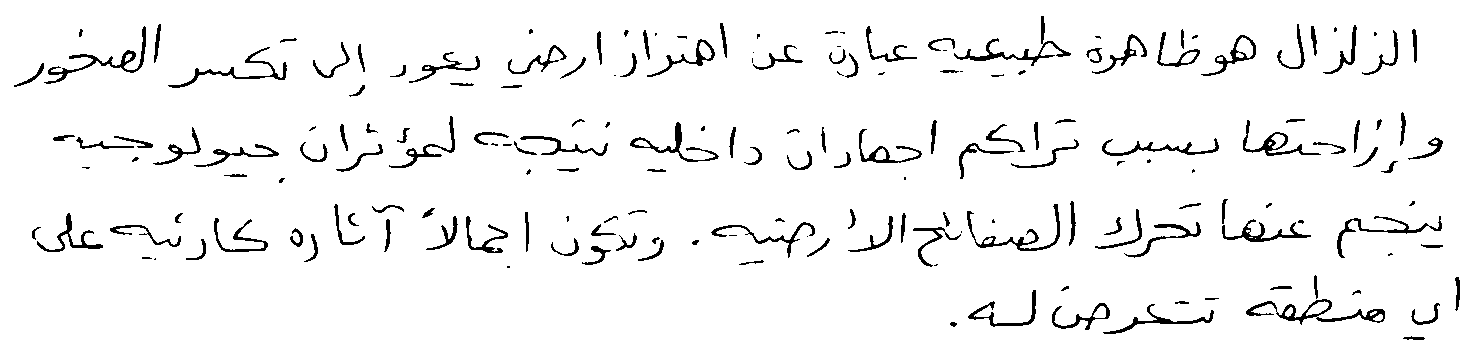 الزلزال هو ظاهرة طبيعيه عبارة عن اهتزاز ارضي يعود إلى تكسر الصخور
وإزاحتها بسبب تراكم اجهادات داخليه نتيجه لمؤثران جيولوجيه
ينجم عنها تحرك الصفائح الأرضيه. وتكون اجمالاً آثاره كارثيه على
اي منطقه تتعرض له.